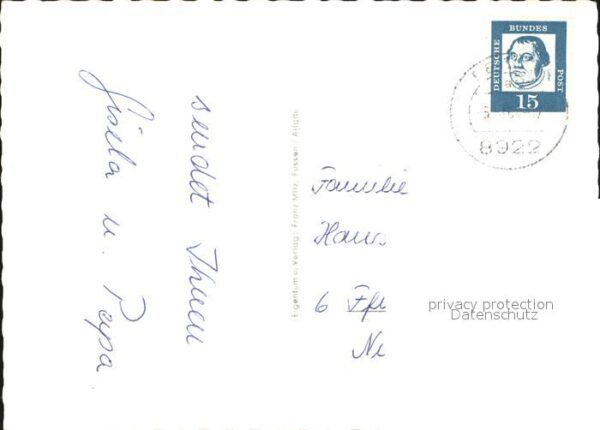 sendet Ihnen
Gisela u. Papa.
Eigentum u. Verlag: Franz Milz, Füssen / Allgäu
DEUTSCHE
BUNDES
POST
15
8922
Familie
Hans
6 Ffm
Ni
privacy protection
Datenschutz